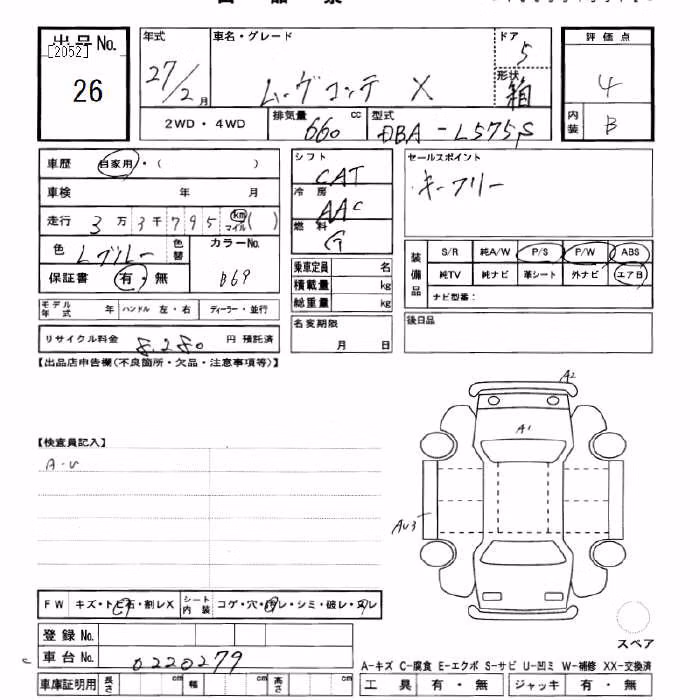 出品No.
[2052]
26
年式
27/2月
車名・グレード
ムーヴコンテ X
ドア
5
形状
箱
2WD・4WD
排気量 660 cc
型式 DBA-L575S
評価点
4
内装
B
車歴 自家用・( )
車検 年 月
走行 3万3千795 km マイル ( )
色 Lブルー 色替
カラーNo.
B69
保証書 有・無
モデル年式 年 ハンドル 左・右 ディーラー・並行
リサイクル料金 8,280 円 預託済
シフト
CAT
冷房
AAC
燃料
G
乗車定員 名
積載量 kg
総重量 kg
名変期限
月 日
セールスポイント
キーフリー
装備品
S/R 純A/W P/S P/W ABS
純TV 純ナビ 革シート 外ナビ エアB
ナビ型番:
後日品
【出品店申告欄(不良箇所・欠品・注意事項等)】
【検査員記入】
A・U
A2
A1
AU3
スペア
FW キズ・トビ石・割レX
シート内装 コゲ・穴・汚レ・シミ・破レ・スレ
登録No.
車台No. 0220279
車庫証明用 長さ cm 幅 cm 高さ cm
A-キズ C-腐食 E-エクボ S-サビ U-凹ミ W-補修 XX-交換済
工具 有・無 ジャッキ 有・無